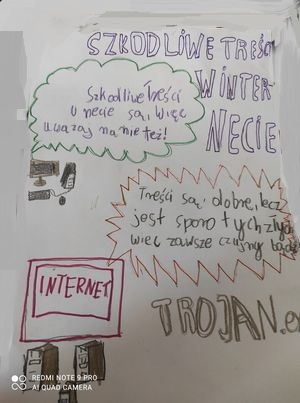 SZKODLIWE TREŚC
W INTER-
NECIE
Szkodliwe Treści
w necie są, więc
uważaj na nie też!
Treści są dobre, lecz
jest sporo tych złych
więc zawsze czujny bądź
INTERNET
TROJAN.e
REDMI NOTE 9 PRO
AI QUAD CAMERA